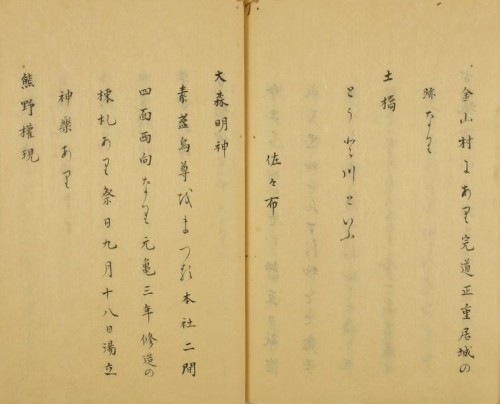 金山村にあり完道正重居城の
跡なり
土橋
とうど川といふ
佐々布
大森明神
素盞烏尊をまつる本社二間
四面西向なり元亀三年修造の
棟札あり祭日九月十八日湯立
神樂あり
熊野權現